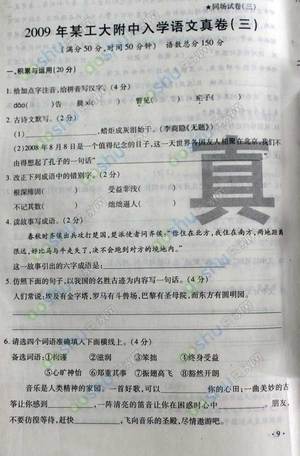 ★同场试卷(三)
2009 年某工大附中入学语文真卷(三)
(满分 50 分,时间 50 分钟) 语数总分 150 分
一、积累与运用(20 分)
1. 给加点字注音,给拼音写汉字。(4 分)
2. 古诗文默写。(2 分)
(1) ,蜡炬成灰泪始干。(李商隐《无题》)
(2)2008 年 8 月 8 日是一个值得纪念的日子,这一天世界各国友人相聚在北京,我们不
由得想起了孔子的一句话“ ”
3. 改正下列成语中的错别字。(2 分)
根深缔固( ) 受益非浅( )
不记其数( ) 绝绝逼人( )
4. 读故事写成语。(2 分)
春秋时齐侯出兵攻打楚国,楚派使者问齐侯:“你住在北方,我住在南方,两地距离
很远,好比马与牛走失了,决不会跑到对方的境地内。”
这一故事引出的六字成语是:
5. 仿照下面的句子,以我国的名胜古迹为内容写一句话。(4 分)
人们常说:埃及有金字塔,罗马有斗兽场,巴黎有圣母院,而东方有圆明园。
6. 请选四个词语准确填入下面横线上。(4 分)
备选词语:①拘谨 ②滋润 ③笨拙 ④终身受益
⑤心旷神怡 ⑥郑重其事 ⑦振翅高飞 ⑧豁然开朗
音乐是人类精神的家园。一首好歌,可以 你的心田;一曲美妙的古
筝让你感到 ,一阵清亮的笛音让你在困惑时心中 。朋友,
不要彷徨等待,赶快 ,飞向音乐的圣殿,尽情遨游吧。
真
·9·